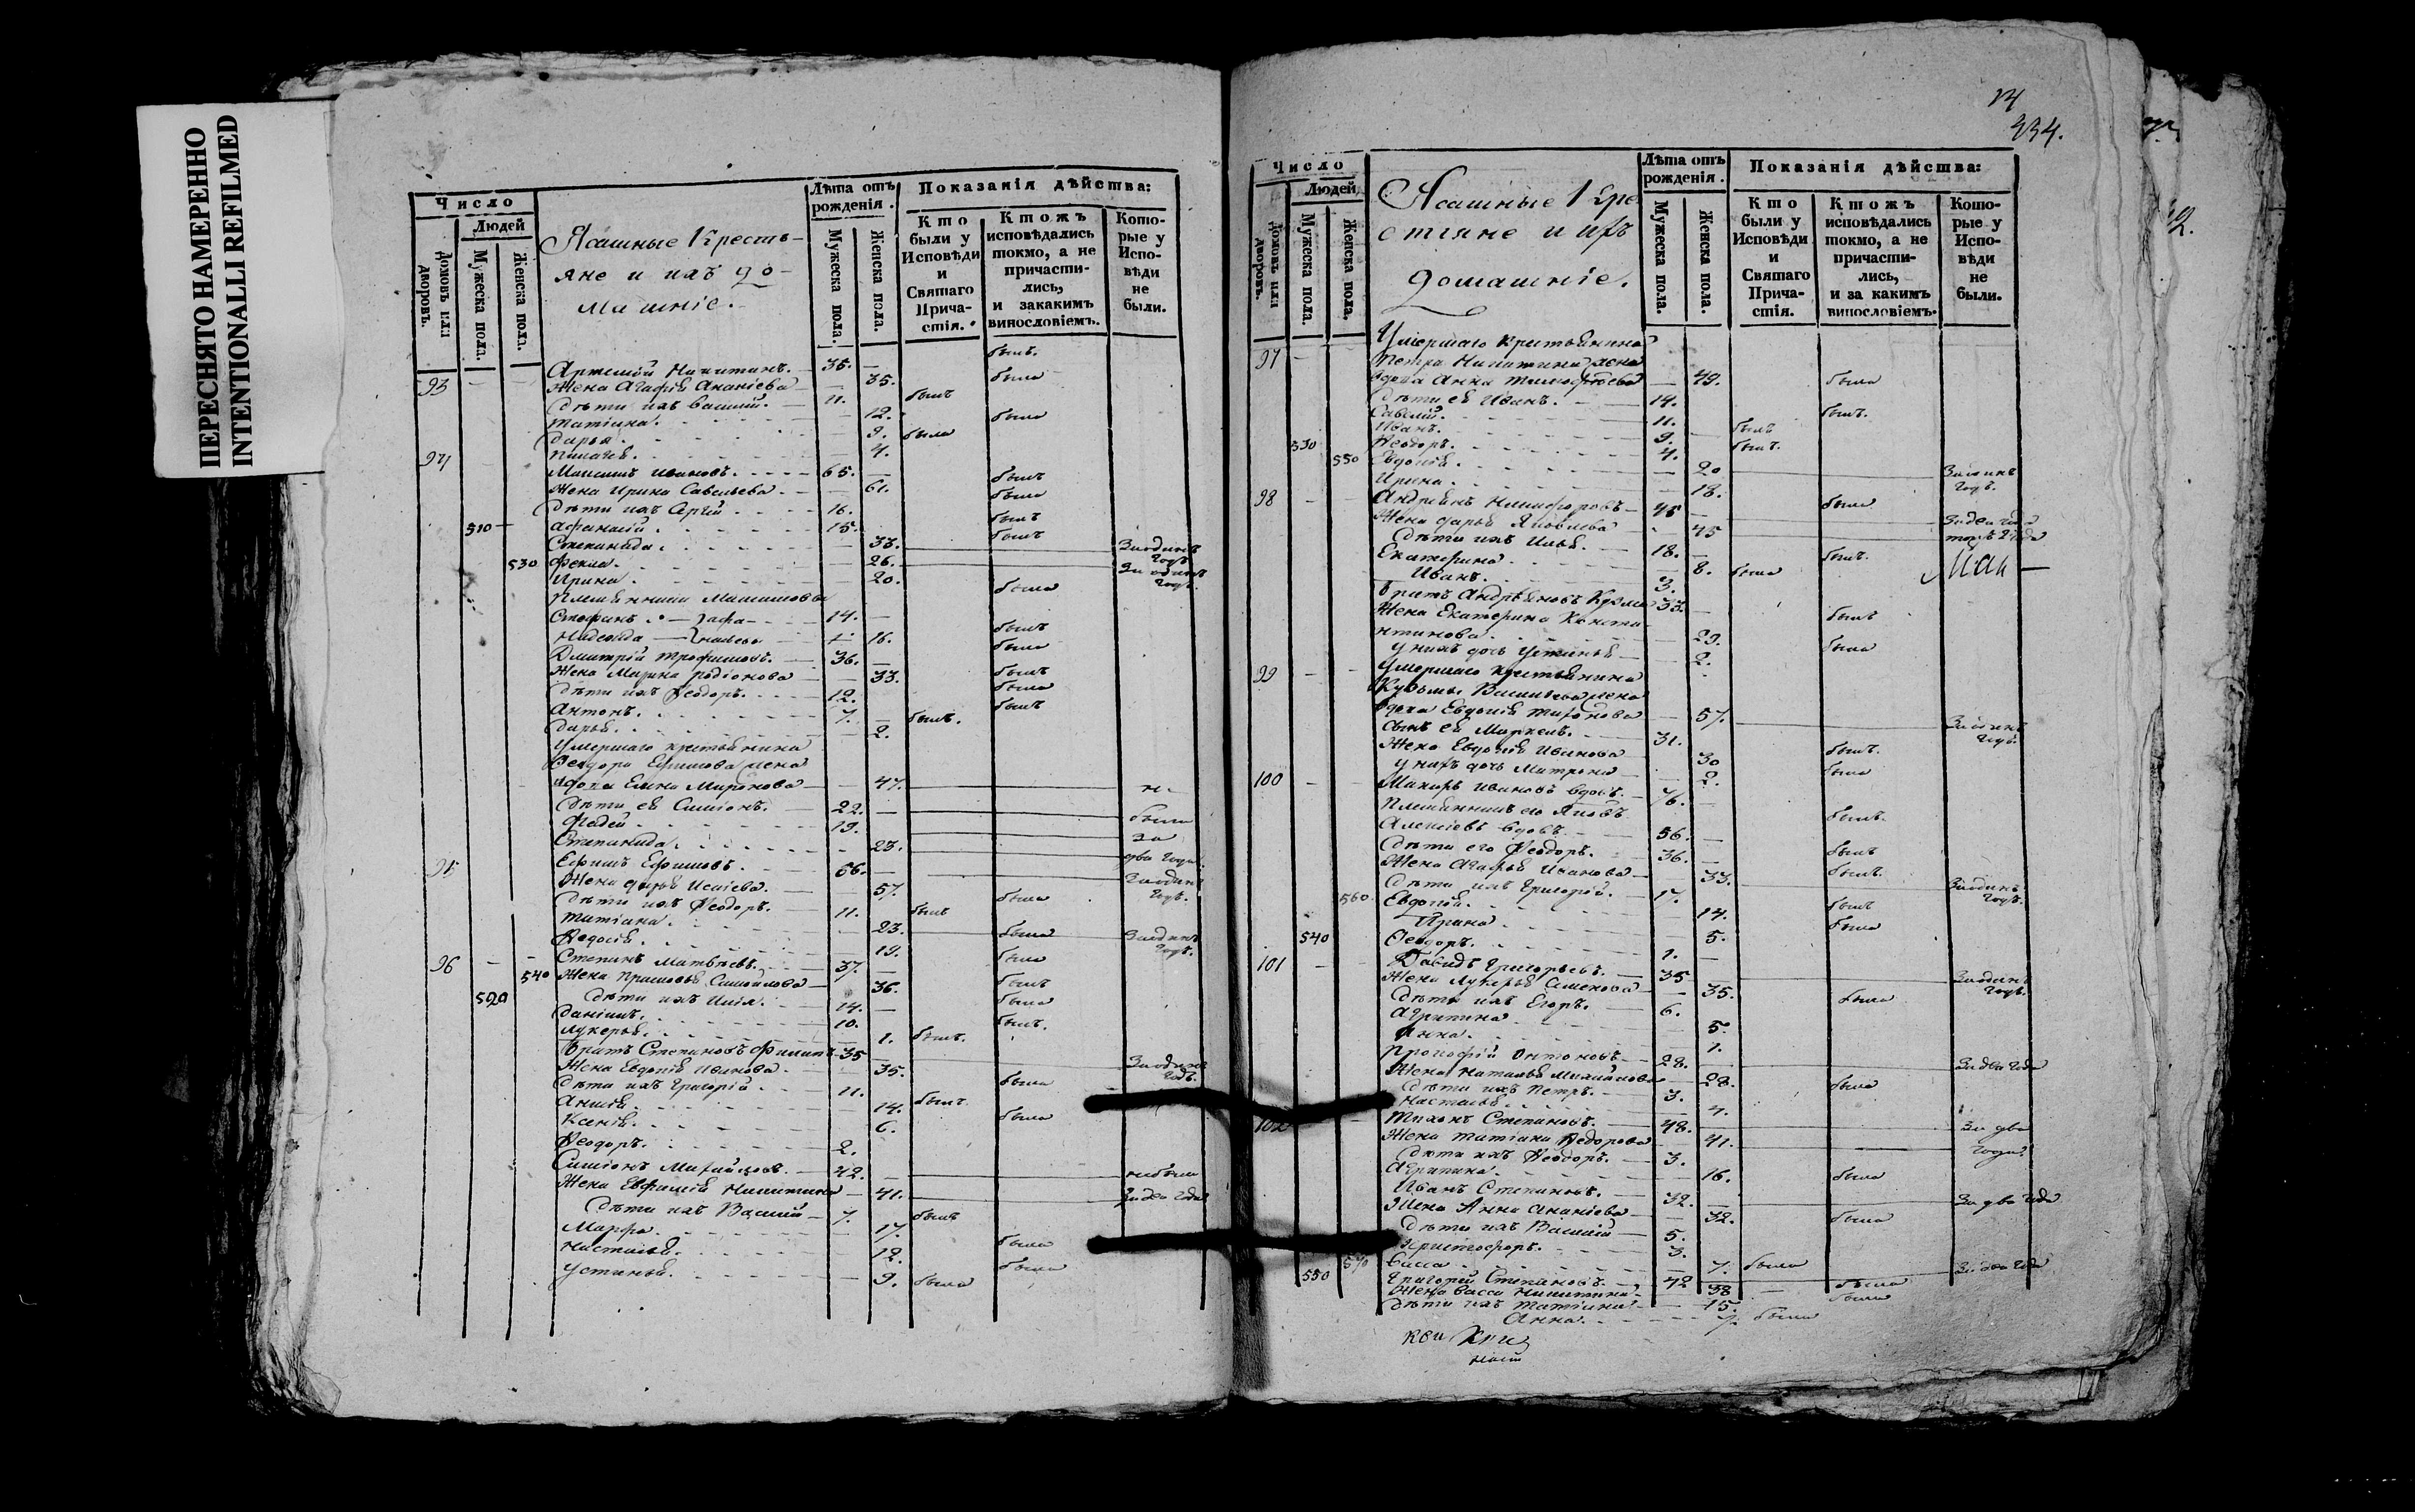 ПЕРЕСНЯТО НАМЕРЕННО
INTENTIONALLI REFILMED
Число
Людей
Домовъ или дворовъ.
Мужеска пола.
Женска пола.
Ясашные Кресть-
яне и ихъ до-
машніе.
Лѣта отъ рожденія.
Мужеска пола.
Женска пола.
Показанія дѣйства:
Кто были у Исповѣди и Святаго Причастія.
Ктожъ исповѣдались токмо, а не причастились, и закакимъ винословіемъ.
Которые у Исповѣди не были.
93 Артемій Никитинъ. 35. былъ.
Жена Агафья Ананіева 35. была
Дѣти ихъ Василій. 11. былъ
Татіана. 12. была
Дарья. 9. была
4.
94 Максимъ Ивановъ. 65. былъ
Жена Ирина Савельева. 61. была
Дѣти ихъ Сергій 16. былъ
510 Афанасій 15. былъ
Степанида. 33. За одинъ годъ
530 Фекла. 26. За одинъ годъ.
Ирина. 20. была
Племянники Максимовы
Стефанъ 14. былъ
Надежда 16. была
Дмитрій Трофимовъ. 36. былъ
Жена Марина Родіонова 33. была
Дѣти ихъ Ѳеодоръ. 12. былъ
Антонъ. 7. былъ.
Дарья. 2.
Умершаго крестьянина
Ѳеодора Ефимова жена
вдова Елена Миронова 47. не
Дѣти ея Симіонъ. 22. были
Фадей 19. за
Степанида. 23. два года.
95 Ефимъ Ефимовъ. 56. За одинъ годъ.
Жена Дарья Исаіева. 57. была
Дѣти ихъ Ѳеодоръ. 11. былъ
Татіана. 23. была За одинъ годъ.
Ѳедосья. 19. была
96 Степанъ Матвѣевъ. 37. былъ
540 Жена Прасковья Самойлова 36. была
520 Дѣти ихъ Илія. 14. былъ.
Даніилъ. 10. былъ.
Лукерья. 1.
Братъ Степановъ Филипъ 35 За одинъ годъ.
Жена Евдокія Иванова. 35. была
Дѣти ихъ Григорій. 11. былъ
14. была
Ксенія. 6.
Ѳеодоръ. 2.
Симіонъ Михайловъ. 42. небыли
Жена Евфимія Никитина 41. За два года
Дѣти ихъ Василій 7. былъ
Марфа. 17. была
Настасья. 12. была
Устинья. 9. была
14
334.
Число
Людей
Домовъ или дворовъ.
Мужеска пола.
Женска пола.
Ясашные Кре-
стьяне и ихъ
домашніе.
Лѣта отъ рожденія.
Мужеска пола.
Женска пола.
Показанія дѣйства:
Кто были у Исповѣди и Святаго Причастія.
Ктожъ исповѣдались токмо, а не причастились, и за какимъ винословіемъ.
Которые у Исповѣди не были.
97 Умершаго крестьянина
Петра Никитина жена
вдова Анна Тимофеева 49. была
Дѣти ея Иванъ. 14. былъ.
Савелій. 11. былъ
Иванъ. 9. былъ.
530 Ѳеодоръ. 4.
550 Евдокія. 20 За одинъ годъ.
Ирина. 18. была
98 Андреянъ Никифоровъ 45
Жена Дарья Яковлева 45
Дѣти ихъ Илья. 18. былъ.
Екатерина. 8. была
Иванъ. 3.
Братъ Андреяновъ Кузма 33. былъ
Жена Екатерина Констан-
нтинова. 29. была
У нихъ дочь Устинья 2.
99 Умершаго крестьянина
Кузьмы Васильева жена
вдова Евдокія 57. За одинъ годъ.
сынъ ея Маркелъ. 31. былъ.
Жена Евдокія Иванова 30 была
у нихъ дочь Матрона 2.
100 Макаръ Ивановъ вдовъ. 76. былъ.
Племянникъ его Яковъ
Алексіевъ вдовъ. 56. былъ
Дѣти его Ѳеодоръ. 36. былъ.
Жена Агафья Иванова 33. За одинъ годъ.
Дѣти ихъ Григорій. 17. былъ
560 Евдокія. 14. была
Ирина. 5.
540 Ѳеодоръ. 1.
101 Давидъ Григорьевъ. 35 За одинъ годъ.
Жена Лукерья Семенова 35. была
Дѣти ихъ Егоръ. 6.
Агрипина 5.
Анна. 1.
Прокофій Антоновъ 28. За два года
Жена Наталья Михайлова 28. была
Дѣти ихъ Петръ. 3.
Настасья. 4.
102 Тихонъ Степановъ. 48. За два
Жена Татіана Ѳедорова 41. года.
Дѣти ихъ Ѳеодоръ. 3.
Агрипина. 16. была
Иванъ Степановъ. 32. За два года
Жена Анна Ананіева 32. была
Дѣти ихъ Василій 5.
Христофоръ. 3.
570 Васса 7. была
550 Григорій Степановъ. 42 За два года
Жена Васса Никитина. 38 была
Дѣти ихъ Татіана 15. была
Анна. 7. была